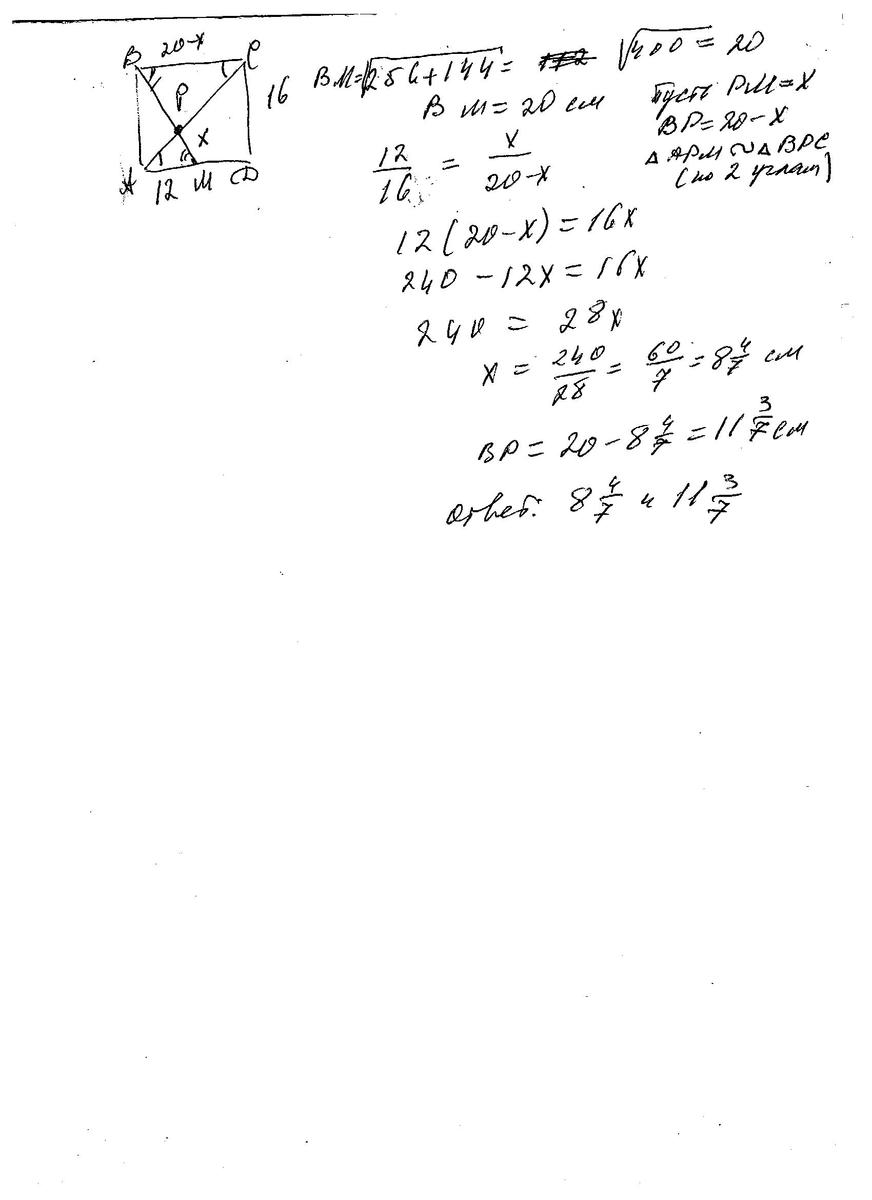 B 20-x C
P
x
A 12 M D
16
BM = √256+144 = √400 = 20
BM = 20 см
Пусть PM = x
BP = 20 - x
△ APM ~ △ BPC
(по 2 углам)
12/16 = x/20-x
12(20-x) = 16x
240 - 12x = 16x
240 = 28x
x = 240/28 = 60/7 = 8 4/7 см
BP = 20 - 8 4/7 = 11 3/7 см
Ответ: 8 4/7 и 11 3/7